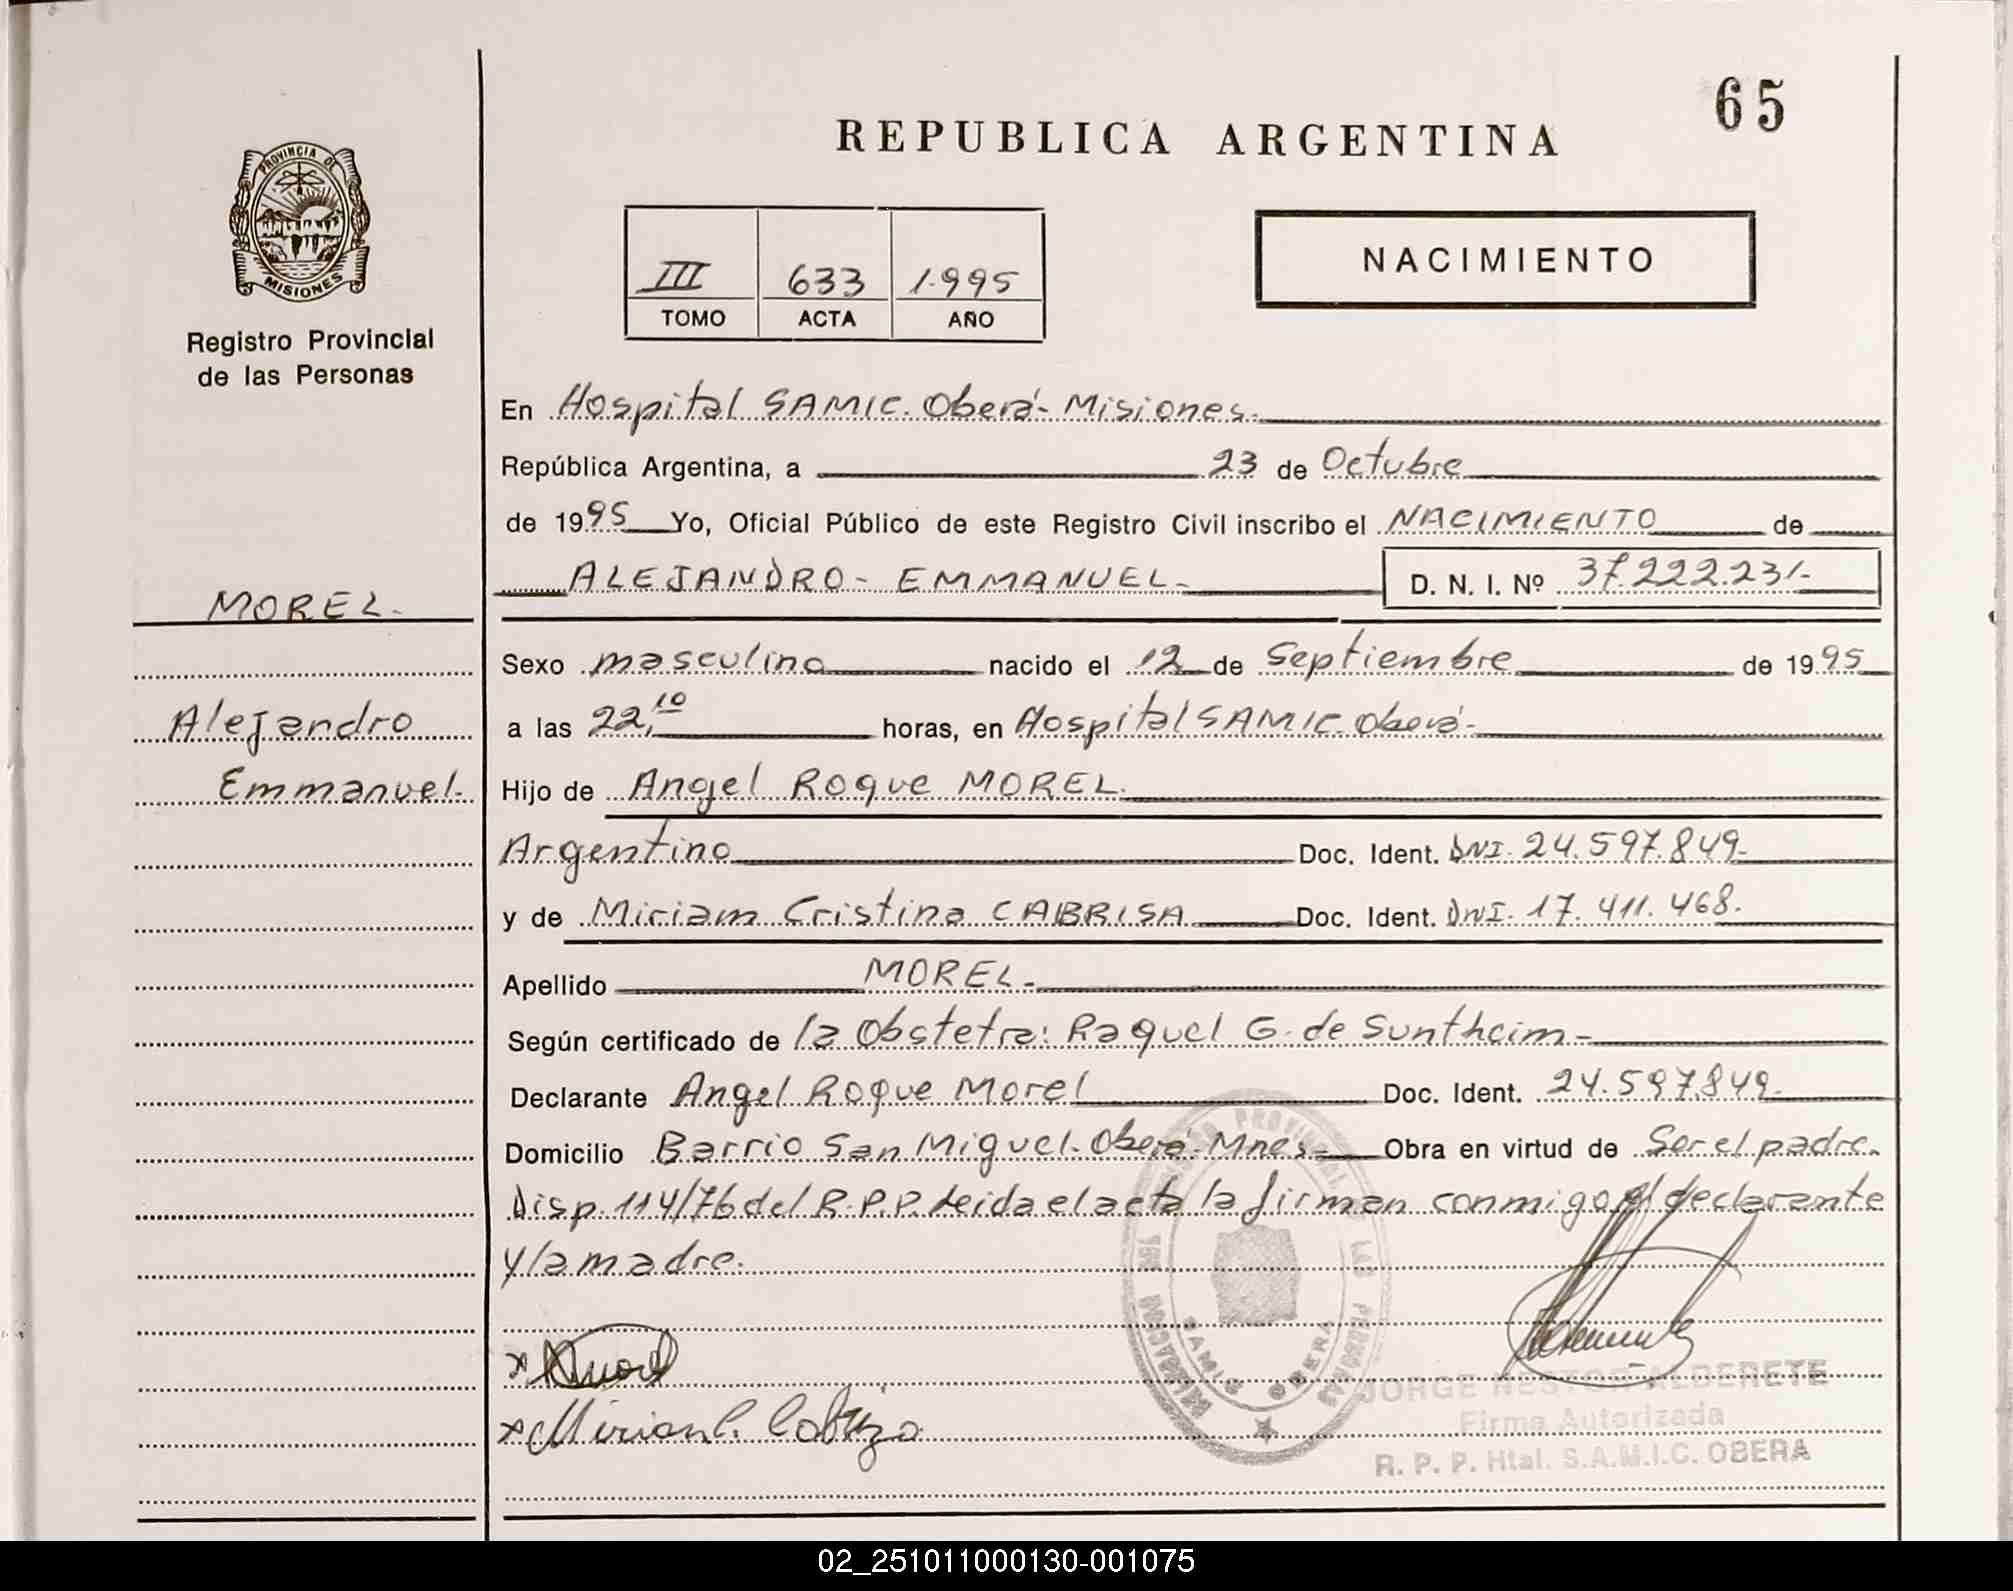 65
REPUBLICA ARGENTINA
PROVINCIA DE
MISIONES
Registro Provincial
de las Personas
III 633 1.995
TOMO ACTA AÑO
NACIMIENTO
En Hospital SAMIC. Oberá- Misiones.
República Argentina, a 23 de Octubre
de 1995 Yo, Oficial Público de este Registro Civil inscribo el NACIMIENTO de
ALEJANDRO- EMMANUEL- D. N. I. Nº 37.222.231.-
MOREL.-
Sexo masculino nacido el 12 de Septiembre de 1995
Alejandro
a las 22,10 horas, en Hospital SAMIC. Oberá-
Emmanuel.
Hijo de Angel Roque MOREL.
Argentino Doc. Ident. DNI. 24.597.849-
y de Miriam Cristina CABRISA Doc. Ident. DNI. 17.411.468.
Apellido MOREL.-
Según certificado de la Obstetra: Raquel G. de Suntheim-
Declarante Angel Roque Morel Doc. Ident. 24.597.849-
Domicilio Barrio San Miguel-Oberá-Mnes- Obra en virtud de Ser el padre.
Disp. 114/76 del R.P.P. Leida el acta la firman conmigo el declarante
y la madre.
x
x Mirian C. Cabriza
SAMIC OBERA
JORGE NESTOR ALDERETE
Firma Autorizada
R. P. P. Htal. S.A.M.I.C. OBERA
02_251011000130-001075